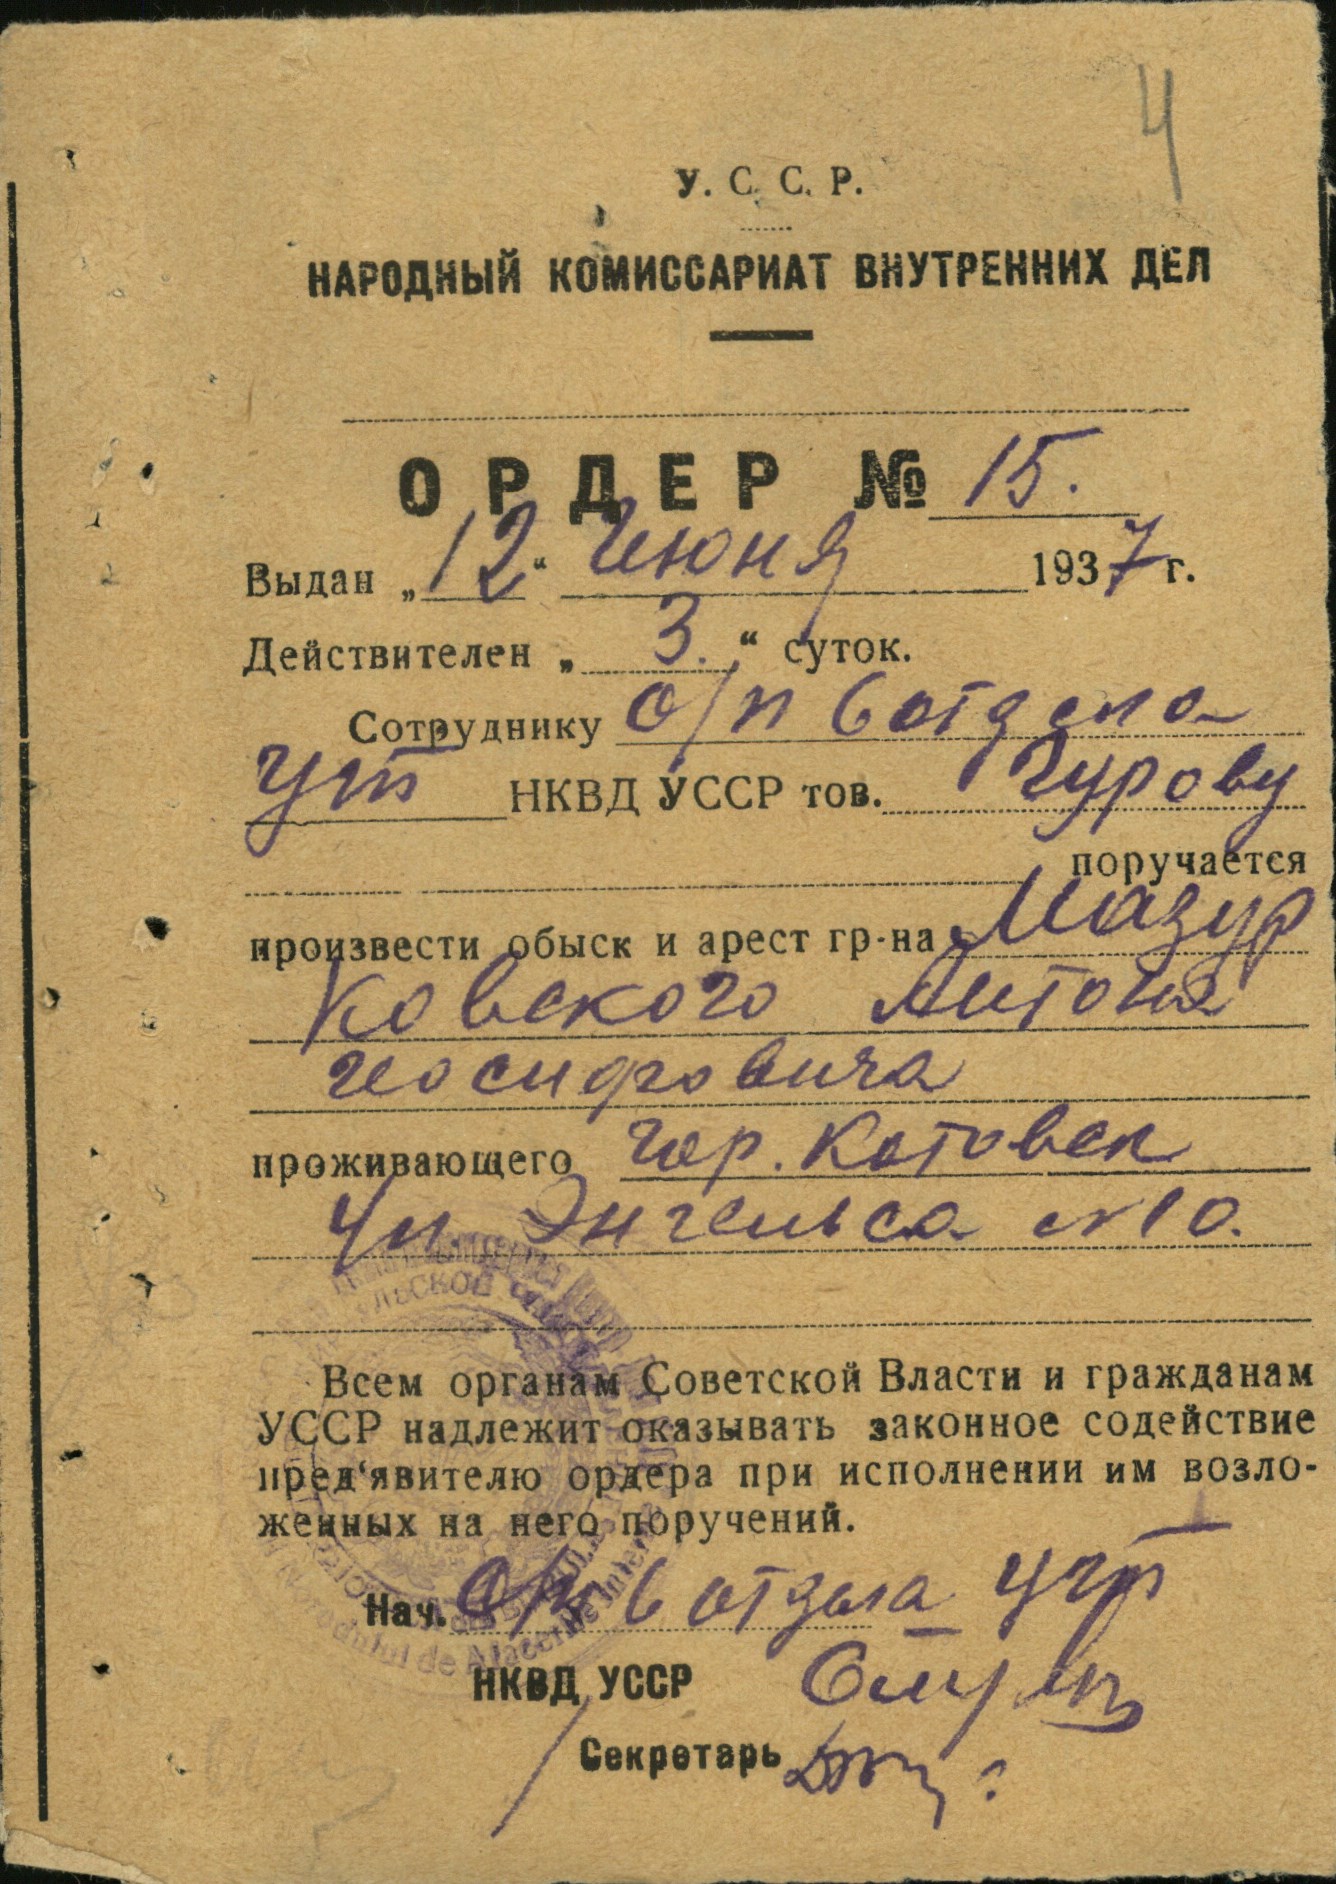 4
У. С. С. Р.
НАРОДНЫЙ КОМИССАРИАТ ВНУТРЕННИХ ДЕЛ
ОРДЕР № 15.
Выдан „12“ Июня 1937 г.
Действителен „3.“ суток.
Сотруднику о/п 6 отдела
НКВД УССР тов. Гурову
поручается
произвести обыск и арест гр-на Мазур
ковского Антона
Иосифовича
проживающего гор. Котовск
ул Энгельса №10.
ЛЬСКОЙ
Всем органам Советской Власти и гражданам
УССР надлежит оказывать законное содействие
пред‘явителю ордера при исполнении им возло-
женных на него поручений.
Нач. о/п 6 отдела
НКВД УССР
Секретарь